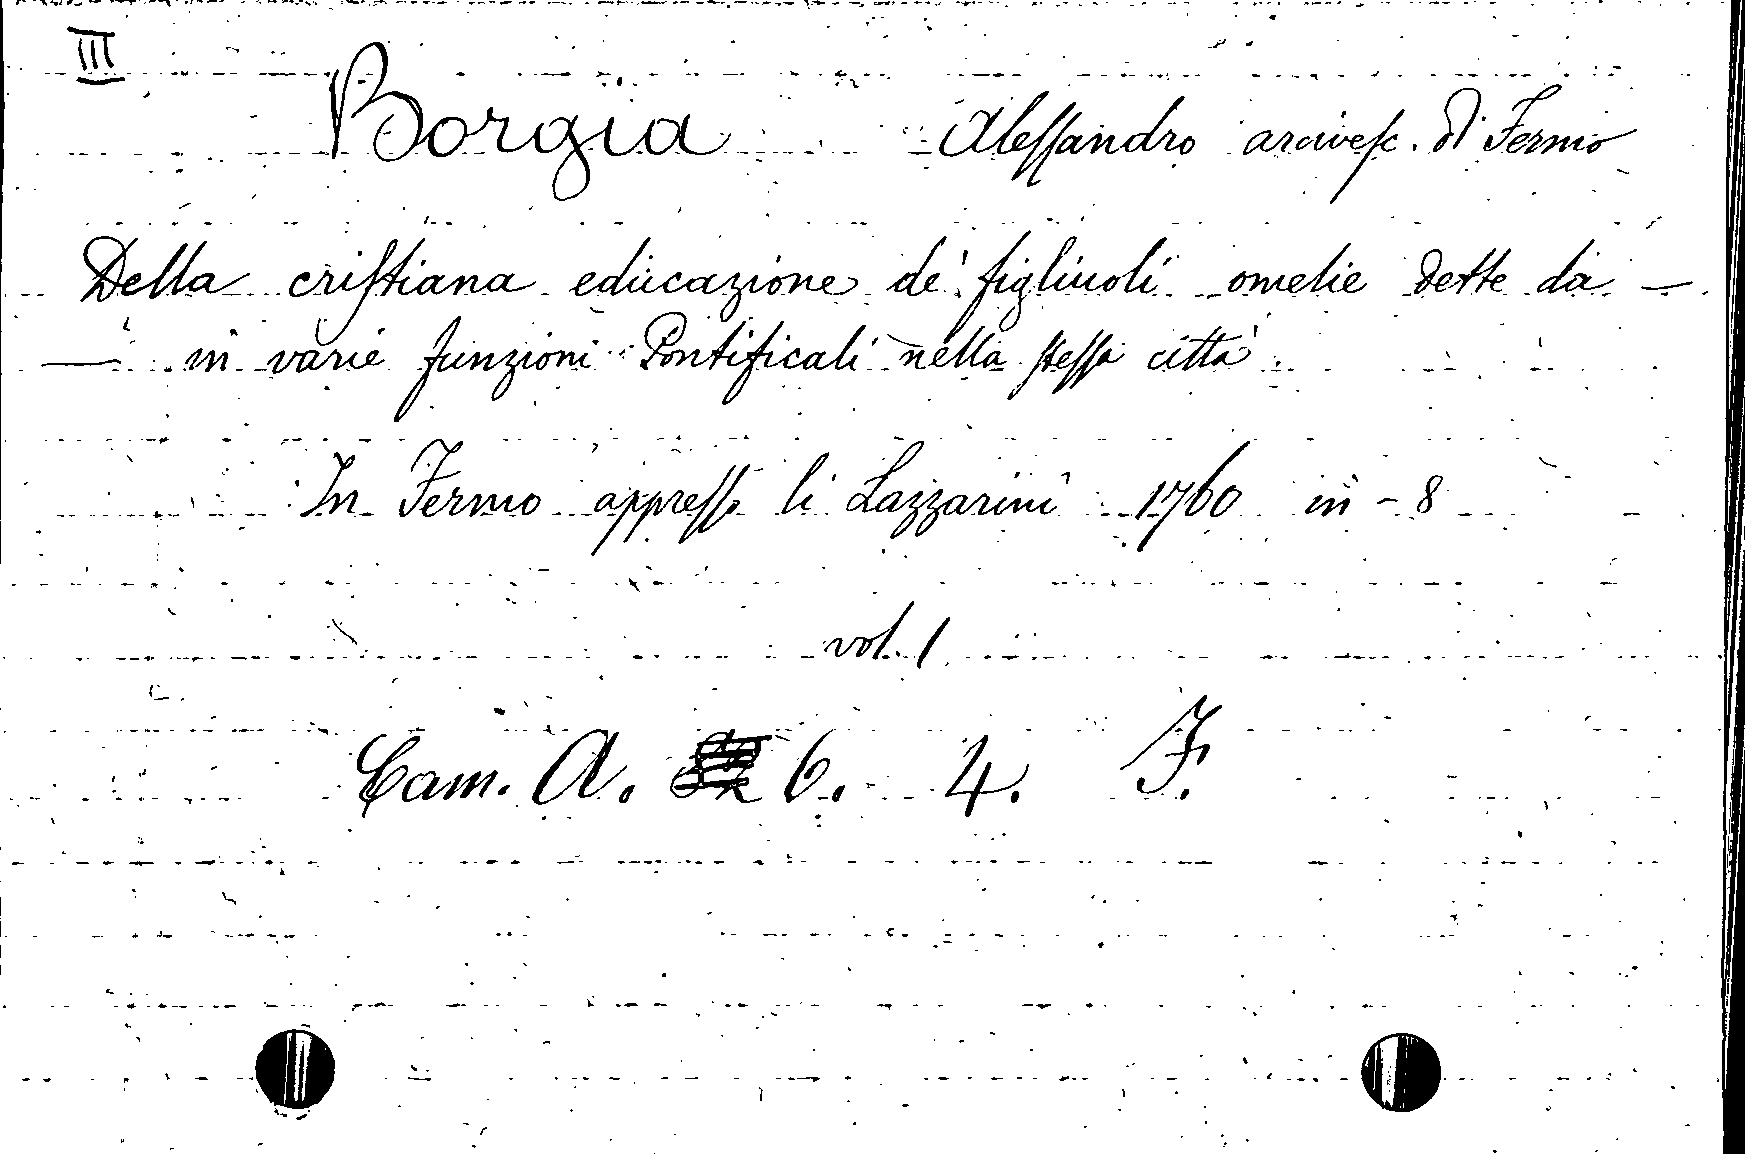 III
Borgia Alessandro arcivesc. di Fermo
Della cristiana educazione de' figliuoli omelie dette da —
— in varie funzioni Pontificali nella stessa città.
In Fermo appresso li Lazzarini 1760 in - 8
vol. 1
Cam. A. 6. 4. F.